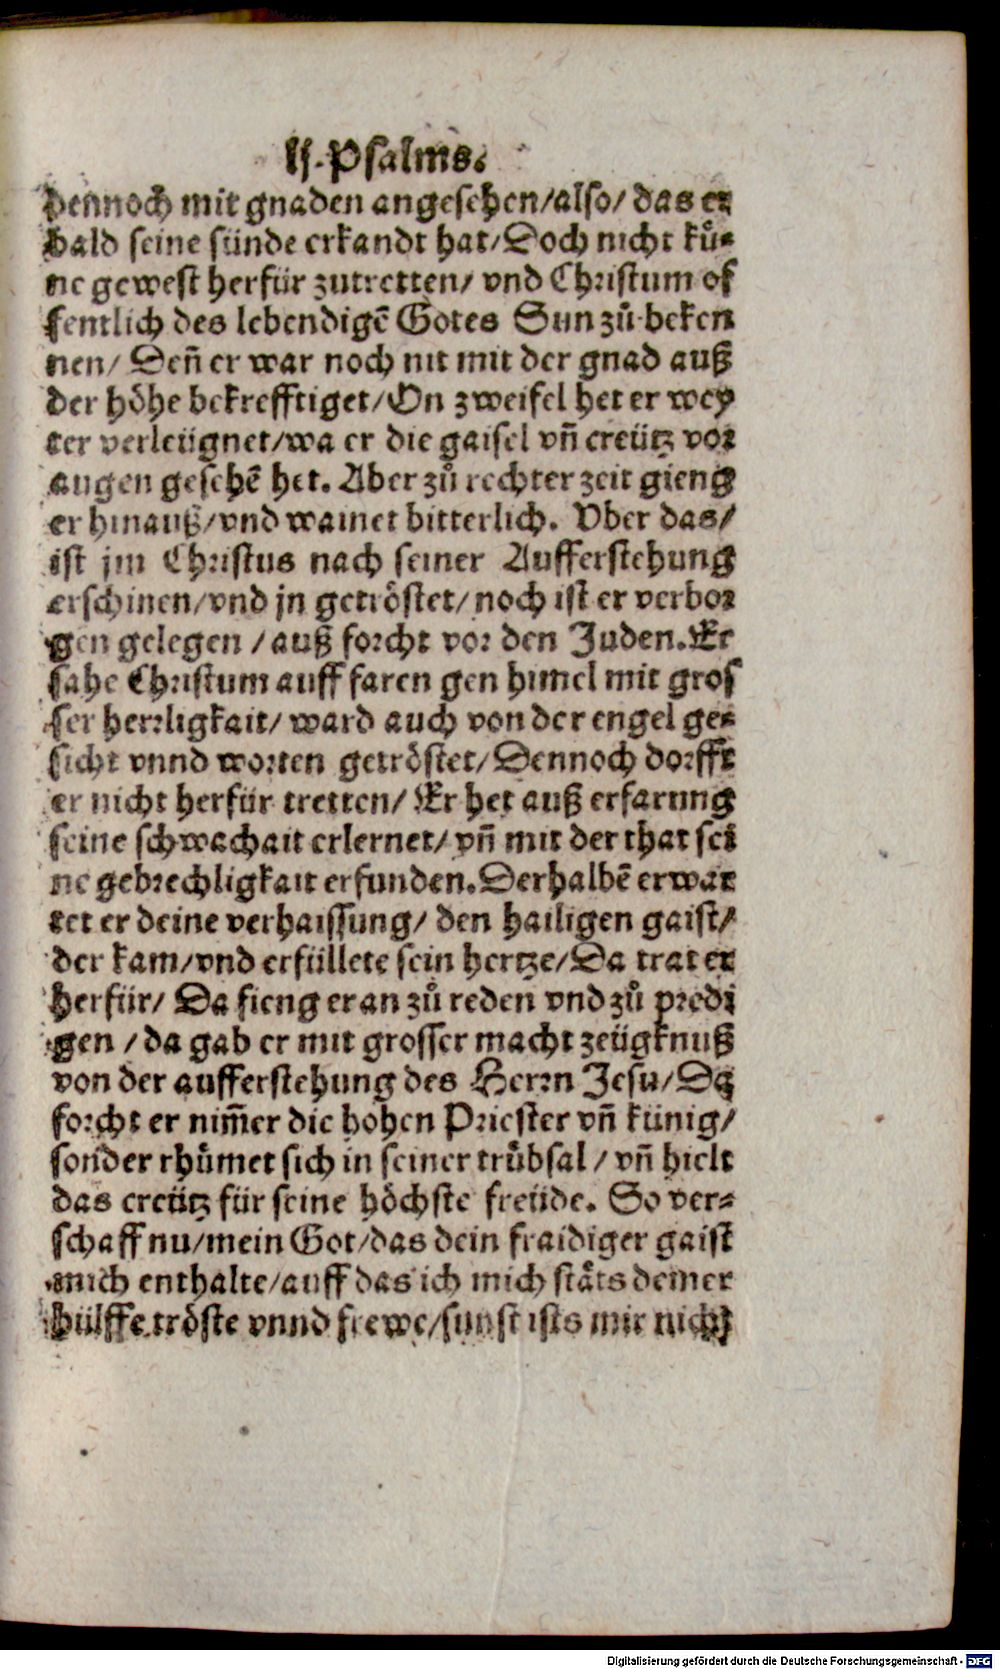 lj. Psalms.
dennoch mit gnaden angesehen/also/ das er
bald seine sünde erkandt hat/Doch nicht kuͤ-
ne gewest herfür zutretten/ vnd Christum of
fentlich des lebendigē Gotes Sun zuͦ beken
nen/ Deñ er war noch nit mit der gnad auß
der hoͤhe bekrefftiget/On zweifel het er wey
ter verleügnet/wa er die gaisel vñ creütz vor
augen gesehē het. Aber zuͦ rechter zeit gieng
er hinauß/vnd wainet bitterlich. Vber das/
ist jm Christus nach seiner Aufferstehung
erschinen/vnd jn getroͤstet/ noch ist er verbor
gen gelegen /auß forcht vor den Juden.Er
sahe Christum auff faren gen himel mit gros
ser herrligkait/ ward auch von der engel ge-
sicht vnnd worten getroͤstet/ Dennoch dorfft
er nicht herfür tretten/ Er het auß erfarung
seine schwachait erlernet/ vñ mit der that sei
ne gebrechligkait erfunden.Derhalbē erwar
tet er deine verhaissung/ den hailigen gaist/
der kam/vnd erfüllete sein hertze/Da trat er
herfür/ Da fieng er an zuͦ reden vnd zuͦ predi
gen /da gab er mit grosser macht zeügknuß
von der aufferstehung des Herrn Jesu/Da
forcht er nim̄er die hohen Priester vñ künig/
sonder rhuͤmet sich in seiner truͤbsal / vñ hielt
das creütz für seine hoͤchste freüde. So ver-
schaff nu/mein Got/das dein fraidiger gaist
mich enthalte/auff das ich mich staͤts deiner
hülffe troͤste vnnd frewe/sunst ists mir nicht
Digitalisierung gefördert durch die Deutsche Forschungsgemeinschaft - DFG